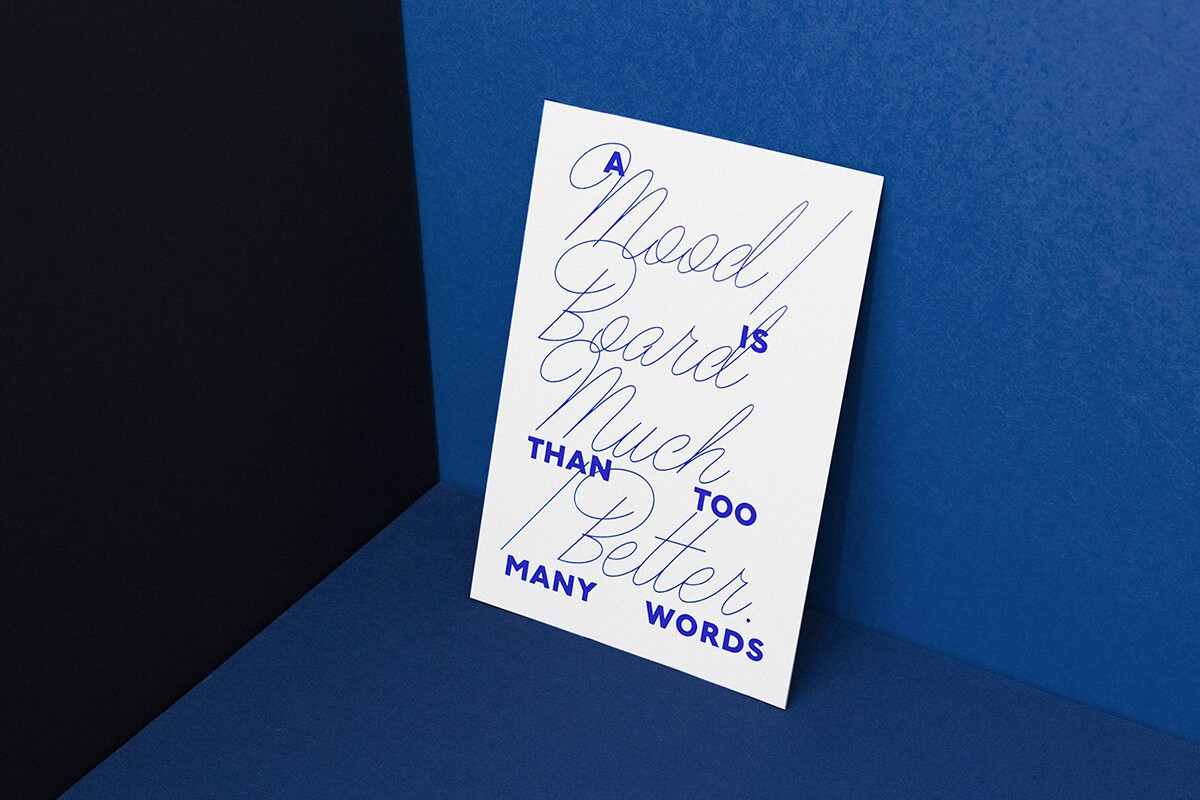 A
Mood /
IS
Board
Much
THAN
TOO
/ Better.
MANY
WORDS